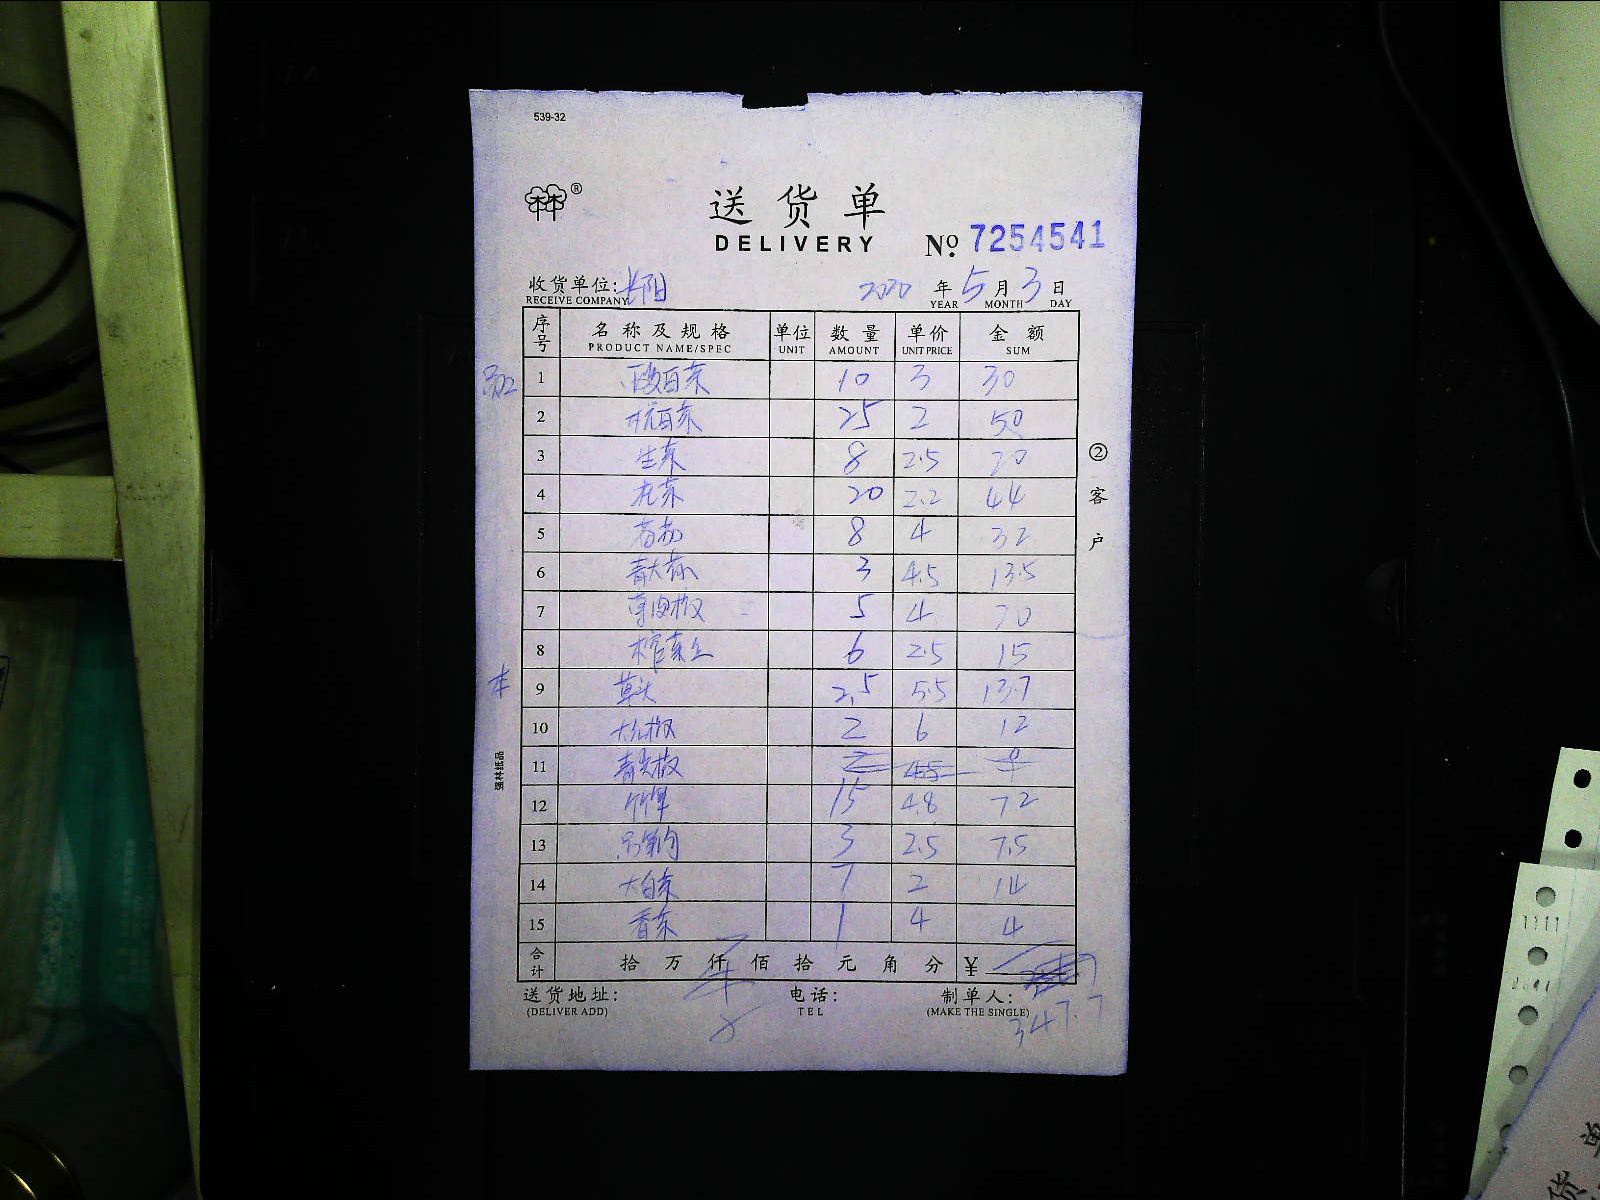 539-32
林林®
送货单
DELIVERY № 7254541
收货单位: 长阳 2020 年 5 月 3 日
RECEIVE COMPANY YEAR MONTH DAY
序号 名称及规格 单位 数量 单价 金额
PRODUCT NAME/SPEC UNIT AMOUNT UNIT PRICE SUM
1 10 3 30
2 杭白菜 25 2 50
3 生菜 8 2.5 20
4 花菜 20 2.2 44
5 8 4 32
6 3 4.5 13.5
7 5 4 20
8 6 2.5 15
本 9 草头 2.5 5.5 13.7
10 2 6 12
11 青尖椒 2 4.5 9
12 竹笋 15 4.8 72
13 3 2.5 7.5
14 大白菜 7 2 14
15 香菜 1 4 4
合计 拾 万 仟 佰 拾 元 角 分 ¥
送货地址: 电话: 制单人:
(DELIVER ADD) TEL (MAKE THE SINGLE)
347.7
②客户
强林纸品